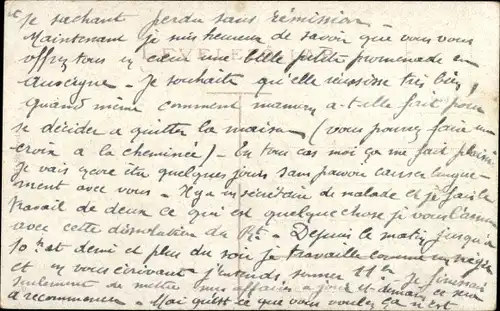 je sachant perdu sans rémission -
Maintenant je suis heureux de savoir que vous vous
offrez tous en cœur une belle petite promenade en
Auvergne - Je souhaite qu'elle réussisse très bien
quand même comment maman a-t-elle fait pour
se décider à quitter la maison (vous pouvez faire une
croix à la cheminée) - En tous cas moi ça me fait plaisir
Je vais être quelques jours sans pouvoir causer longue-
ment avec vous - Il y a un secrétaire de malade et je fais le
travail de deux ce qui est quelque chose je vous l'assure
avec cette dissolution du Rgt - Depuis le matin jusqu'à
10 h et demi et plus du soir je travaille comme un nègre
et en vous écrivant j'entends sonner 11 h - Je finissais
seulement de mettre mes affaires à jour et demain ce sera
à recommencer - Mais qu'est ce que vous voulez ça n'est